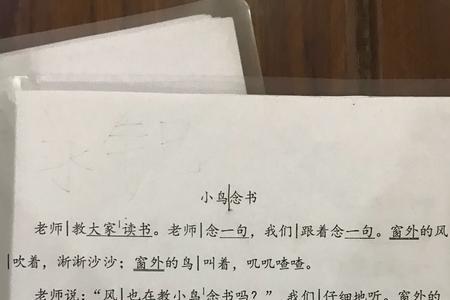 小鸟念书
老师教大家读书。老师念一句，我们跟着念一句。窗外的风
吹着，淅淅沙沙；窗外的鸟叫着，叽叽喳喳。
老师说：“风也在教小鸟念书吗？”我们仔细地听。窗外的